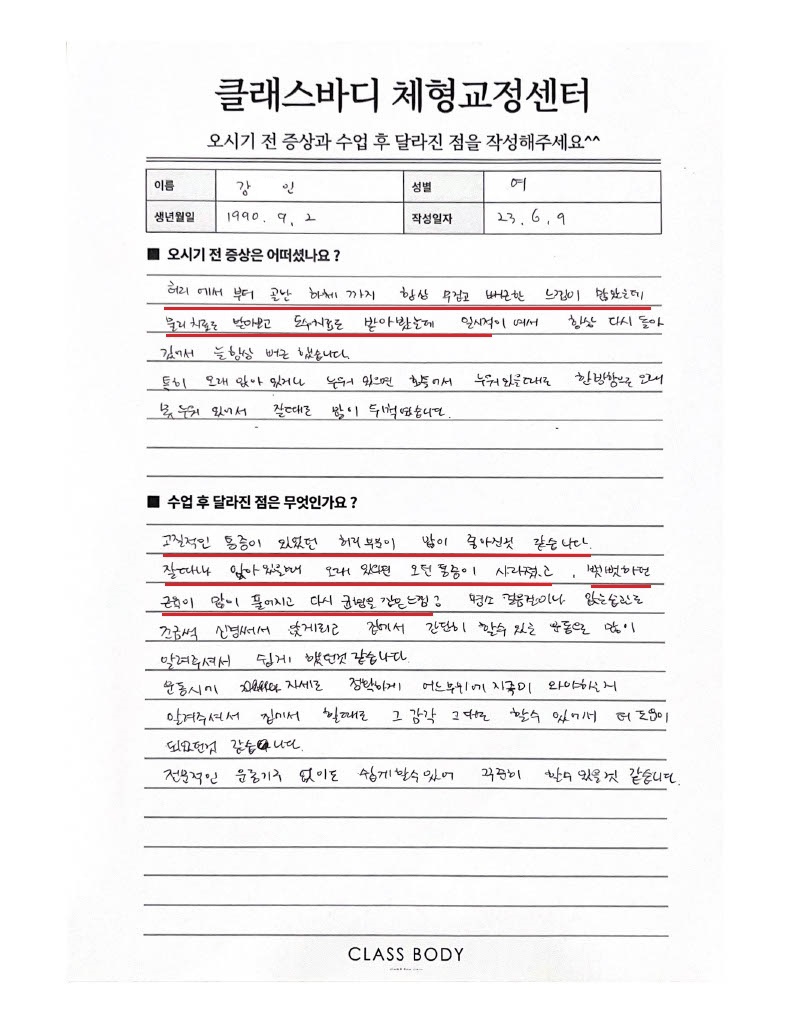 클래스바디 체형교정센터
오시기 전 증상과 수업 후 달라진 점을 작성해주세요^^
이름 강 인 성별 여
생년월일 1990. 9. 2 작성일자 23. 6. 9
■ 오시기 전 증상은 어떠셨나요 ?
허리 에서 부터 골반 하체 까지 항상 무겁고 뻐근한 느낌이 많았는데
물리치료도 받아보고 도수치료도 받아봤는데 일시적이여서 항상 다시 돌아
갔어서 늘항상 뻐근 했습니다.
특히 오래 앉아 있거나 누워 있으면 한쪽으로 누워있을때도 한방향으로 오래
못 누워 있어서 잘때도 많이 뒤척였습니다.
■ 수업 후 달라진 점은 무엇인가요 ?
고질적인 통증이 있었던 허리 부분이 많이 좋아진것 같습니다.
잘때나 앉아있을때 오래 있으면 오던 통증이 사라졌고, 뻣뻣하던
근육이 많이 풀어지고 다시 균형을 잡는느낌? 평소 걸음걸이나 앉는습관도
조금씩 신경써서 맞게하고 집에서 간단히 할수 있는 운동도 많이
알려주셔서 쉽게 했던것 같습니다.
운동시에 자세도 정확하게 어느부위에 자극이 와야하는지
알려주셔서 집에서 할때도 그 감각 그대로 할수 있어서 더 도움이
되었던것 같습니다.
전문적인 운동기구 없이도 쉽게할수있어 꾸준히 할수 있을것 같습니다.
CLASS BODY